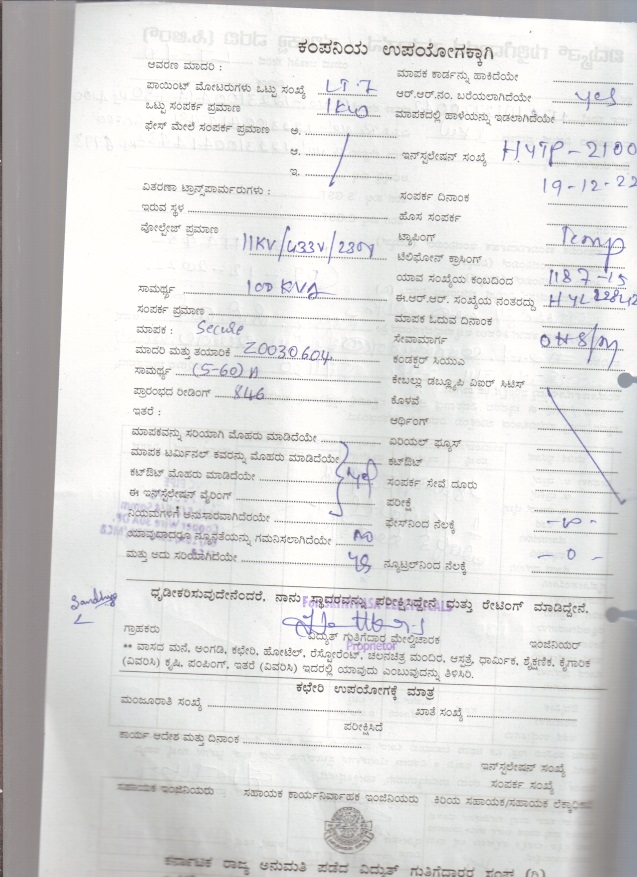 ಕಂಪನಿಯ ಉಪಯೋಗಕ್ಕಾಗಿ
ಆವರಣ ಮಾದರಿ :
ಮಾಪಕ ಕಾರ್ಡನ್ನು ಹಾಕಿದೆಯೇ
ಪಾಯಿಂಟ್ ಮೋಟರುಗಳು ಒಟ್ಟು ಸಂಖ್ಯೆ LT-7
ಆರ್.ಆರ್.ನಂ. ಬರೆಯಲಾಗಿದೆಯೇ yes
ಒಟ್ಟು ಸಂಪರ್ಕ ಪ್ರಮಾಣ 1KW
ಮಾಪಕದಲ್ಲಿ ಹಾಳೆಯನ್ನು ಇಡಲಾಗಿದೆಯೇ
ಫೇಸ್ ಮೇಲೆ ಸಂಪರ್ಕ ಪ್ರಮಾಣ ಅ.
ಆ.
ಇನ್‌ಸ್ಟಲೇಷನ್ ಸಂಖ್ಯೆ HYTP-2100
ಇ.
ವಿತರಣಾ ಟ್ರಾನ್ಸ್‌ಪಾರ್ಮರುಗಳು :
ಸಂಪರ್ಕ ದಿನಾಂಕ 19-12-22
ಇರುವ ಸ್ಥಳ
ಹೊಸ ಸಂಪರ್ಕ
ವೋಲ್ಟೇಜ್ ಪ್ರಮಾಣ 11KV/433V/230V
ಟ್ಯಾಪಿಂಗ್ Temp
ಟೆಲಿಫೋನ್ ಕ್ರಾಸಿಂಗ್
ಯಾವ ಸಂಖ್ಯೆಯ ಕಂಬದಿಂದ 1187-15
ಸಾಮರ್ಥ್ಯ 100KVA
ಈ.ಆರ್.ಆರ್. ಸಂಖ್ಯೆಯ ನಂತರದ್ದು HYL22842
ಸಂಪರ್ಕ ಪ್ರಮಾಣ
ಮಾಪಕ ಓದುವ ದಿನಾಂಕ
ಮಾಪಕ : Secure
ಸೇವಾಮಾರ್ಗ
ಮಾದರಿ ಮತ್ತು ತಯಾರಿಕೆ 20030604
ಕಂಡಕ್ಟರ್ ಸಿಯುಎ
ಸಾಮರ್ಥ್ಯ (5-60)A
ಕೇಬಲ್ಲು ಡಬ್ಲ್ಯೂಪಿ ವಿಐರ್ ಸಿಟಿಸ್
ಪ್ರಾರಂಭದ ರೀಡಿಂಗ್ 846
ಕೊಳವೆ
ಇತರೆ :
ಆರ್ಥಿಂಗ್
ಮಾಪಕವನ್ನು ಸರಿಯಾಗಿ ಮೊಹರು ಮಾಡಿದೆಯೇ
ಏರಿಯಲ್ ಫ್ಯೂಸ್
ಮಾಪಕ ಟರ್ಮಿನಲ್ ಕವರನ್ನು ಮೊಹರು ಮಾಡಿದೆಯೇ
ಕಟ್‌ಔಟ್
ಕಟ್‌ಔಟ್ ಮೊಹರು ಮಾಡಿದೆಯೇ yes
ಸಂಪರ್ಕ ಸೇವೆ ದೂರು
ಈ ಇನ್‌ಸ್ಟಲೇಷನ್ ವೈರಿಂಗ್
ಪರೀಕ್ಷೆ
ನಿಯಮಗಳಿಗೆ ಅನುಸಾರವಾಗಿದೆರಯೇ
ಫೇಸ್‌ನಿಂದ ನೆಲಕ್ಕೆ
ಯಾವುದಾದರೂ ನ್ಯೂನತೆಯನ್ನು ಗಮನಿಸಲಾಗಿದೆಯೇ no
ಮತ್ತು ಅದು ಸರಿಯಾಗಿದೆಯೇ yes
ನ್ಯೂಟ್ರಲ್‌ನಿಂದ ನೆಲಕ್ಕೆ - 0 -
ಧೃಢೀಕರಿಸುವುದೇನೆಂದರೆ. ನಾನು ಸ್ಥಾವರವನ್ನು ಪರೀಕ್ಷಿಸಿದ್ದೇನೆ ಮತ್ತು ರೇಟಿಂಗ್ ಮಾಡಿದ್ದೇನೆ.
ಗ್ರಾಹಕರು
ವಿದ್ಯುತ್ ಗುತಿಗೆದಾರ ಮೇಲ್ವಿಚಾರಕ
ಇಂಜಿನಿಯರ್
Proprietor
** ವಾಸದ ಮನೆ, ಅಂಗಡಿ, ಕಛೇರಿ, ಹೋಟೆಲ್, ರೆಸ್ಟೋರೆಂಟ್, ಚಲನಚಿತ್ರ ಮಂದಿರ, ಆಸ್ಪತ್ರೆ, ಧಾರ್ಮಿಕ, ಶೈಕ್ಷಣಿಕ, ಕೈಗಾರಿಕ
(ವಿವರಿಸಿ) ಕೃಷಿ, ಪಂಪಿಂಗ್, ಇತರೆ (ವಿವರಿಸಿ) ಇದರಲ್ಲಿ ಯಾವುದು ಎಂಬುವುದನ್ನು ತಿಳಿಸಿರಿ.
ಕಛೇರಿ ಉಪಯೋಗಕ್ಕೆ ಮಾತ್ರ
ಮಂಜೂರಾತಿ ಸಂಖ್ಯೆ
ಖಾತೆ ಸಂಖ್ಯೆ
ಪರೀಕ್ಷಿಸಿದೆ
ಕಾರ್ಯ ಆದೇಶ ಮತ್ತು ದಿನಾಂಕ
ಇನ್‌ಸ್ಟಲೇಷನ್ ಸಂಖ್ಯೆ
ಸಂಪರ್ಕ ಸಂಖ್ಯೆ
ಸಹಾಯಕ ಇಂಜಿನಿಯರು
ಸಹಾಯಕ ಕಾರ್ಯನಿರ್ವಾಹಕ ಇಂಜಿನಿಯರು
ಕಿರಿಯ ಸಹಾಯಕ/ಸಹಾಯಕ
ಕರ್ನಾಟಕ ರಾಜ್ಯ ಅನುಮತಿ ಪಡೆದ ವಿದ್ಯುತ್ ಗುತಿಗೆದಾರರ ಸಂಘ (ರಿ)